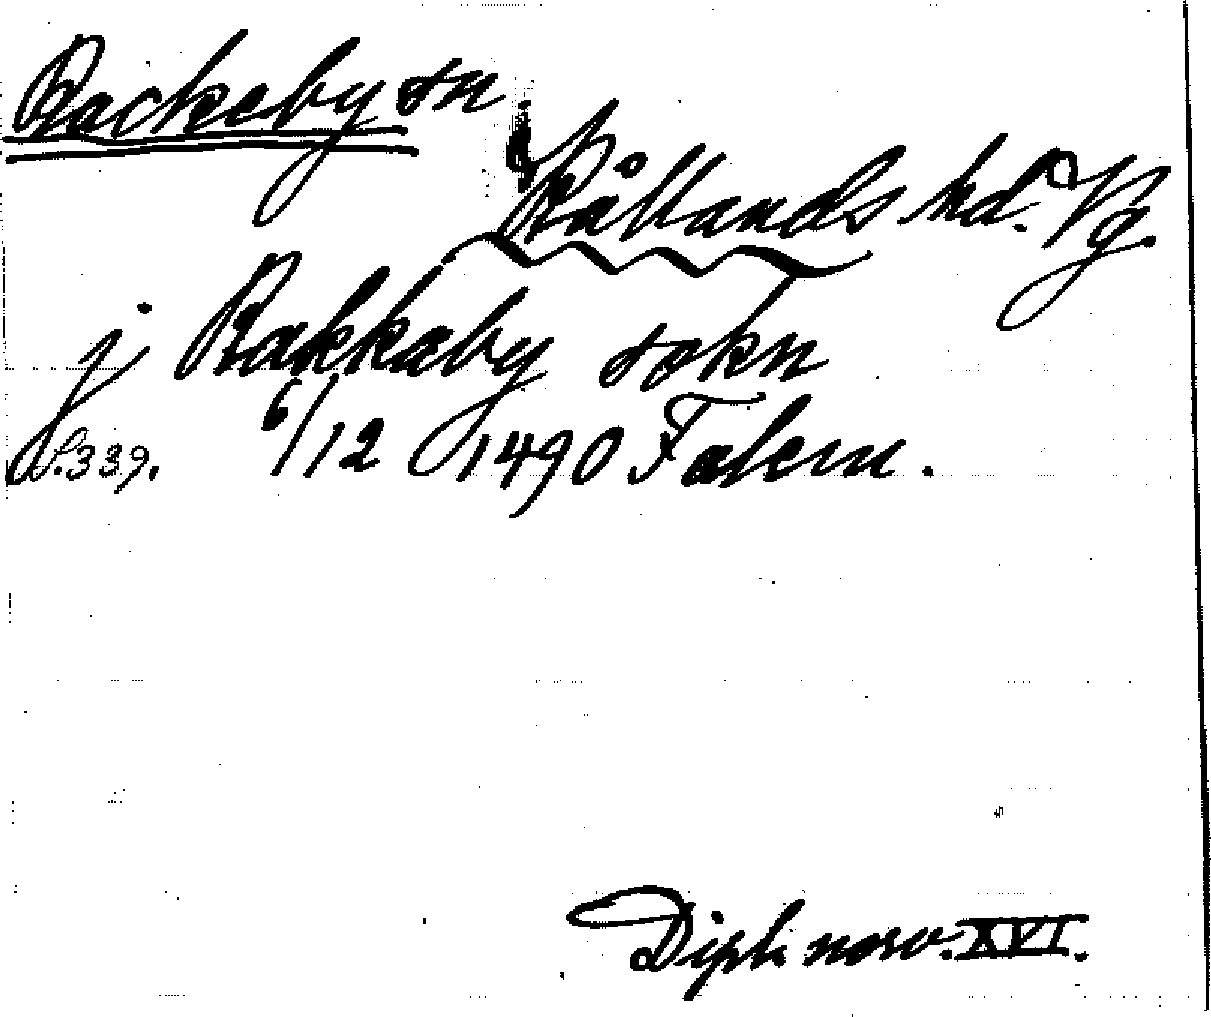 Rackeby sn.
Kållands hd. Vg.
j Rakkaby sokn
S. 339. 6/12 1490 Falem.
Dipl. norv. XVI.